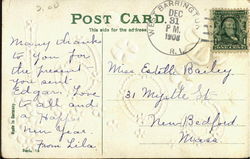 POST CARD
This side for the address.
WEST BARRINGTON
DEC
31
P.M.
1908
R.I.
Many thanks
to you for
the present
you sent
Edgar. Love
to all and
a Happy
New Year
From Lila.
Miss Estella Bailey
31 Myrtle St
New Bedford
Mass